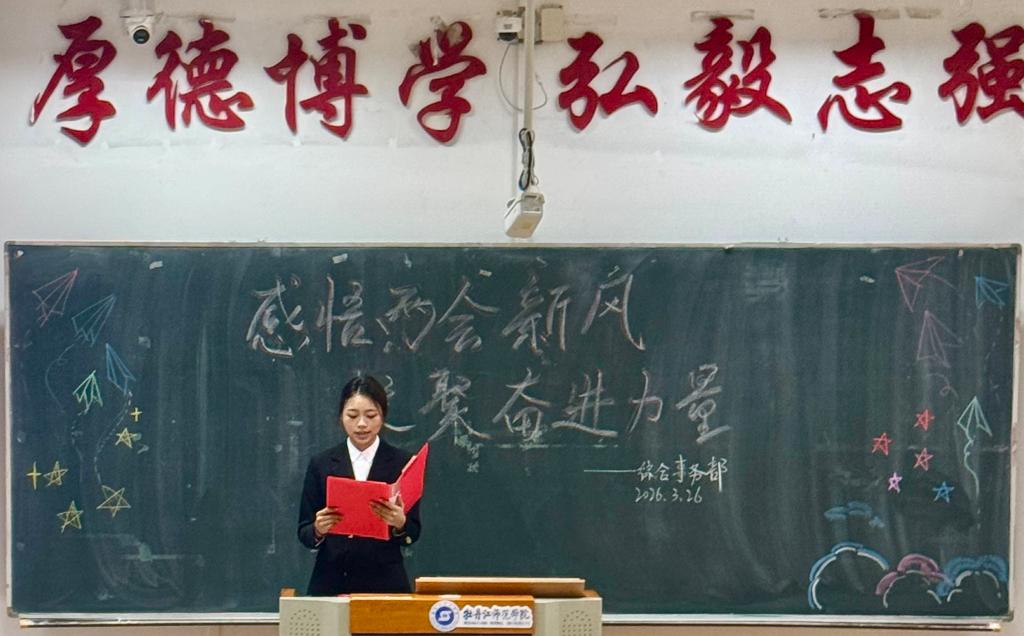 厚德博学弘毅志强
感悟两会新风
聚奋进力量
——综合事务部
2026.3.26
牡丹江师范学院